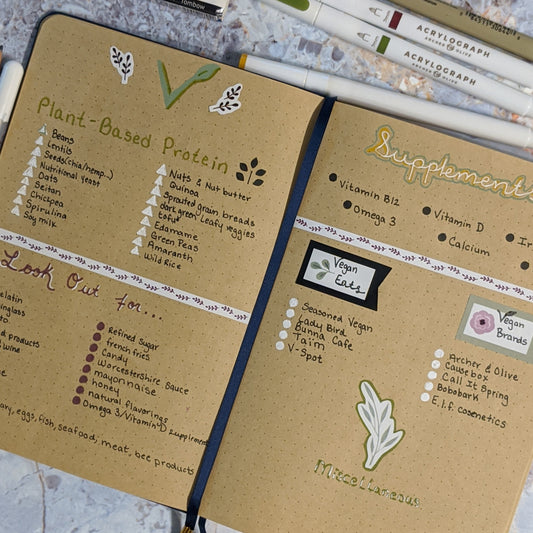 tombow
ACRYLOGRAPH
ARCHER & OLIVE
ACRYLOGRAPH
ARCHER & OLIVE
Plant-Based Protein
Beans
Lentils
Seeds (chia/hemp...)
Nutritional yeast
Oats
Seitan
Chickpea
Spirulina
Soy milk
Nuts & Nut butter
Quinoa
Sprouted grain breads
dark green leafy veggies
tofu
Edamame
Green Peas
Amaranth
Wild Rice
Look Out for...
elatin
inglass
products
wine
Refined sugar
french fries
Candy
Worcestershire Sauce
mayonnaise
honey
natural flavorings
Omega 3/Vitamin D supplement
ary, eggs, fish, seafood, meat, bee products
Supplements
Vitamin B12
Omega 3
Vitamin D
Calcium
Ir
Vegan
Eats
Seasoned Vegan
Lady Bird
Bunna Cafe
Taïm
V-Spot
Vegan
Brands
Archer & Olive
Causebox
Call It Spring
Bobobark
E.l.f. cosmetics
Miscellaneous